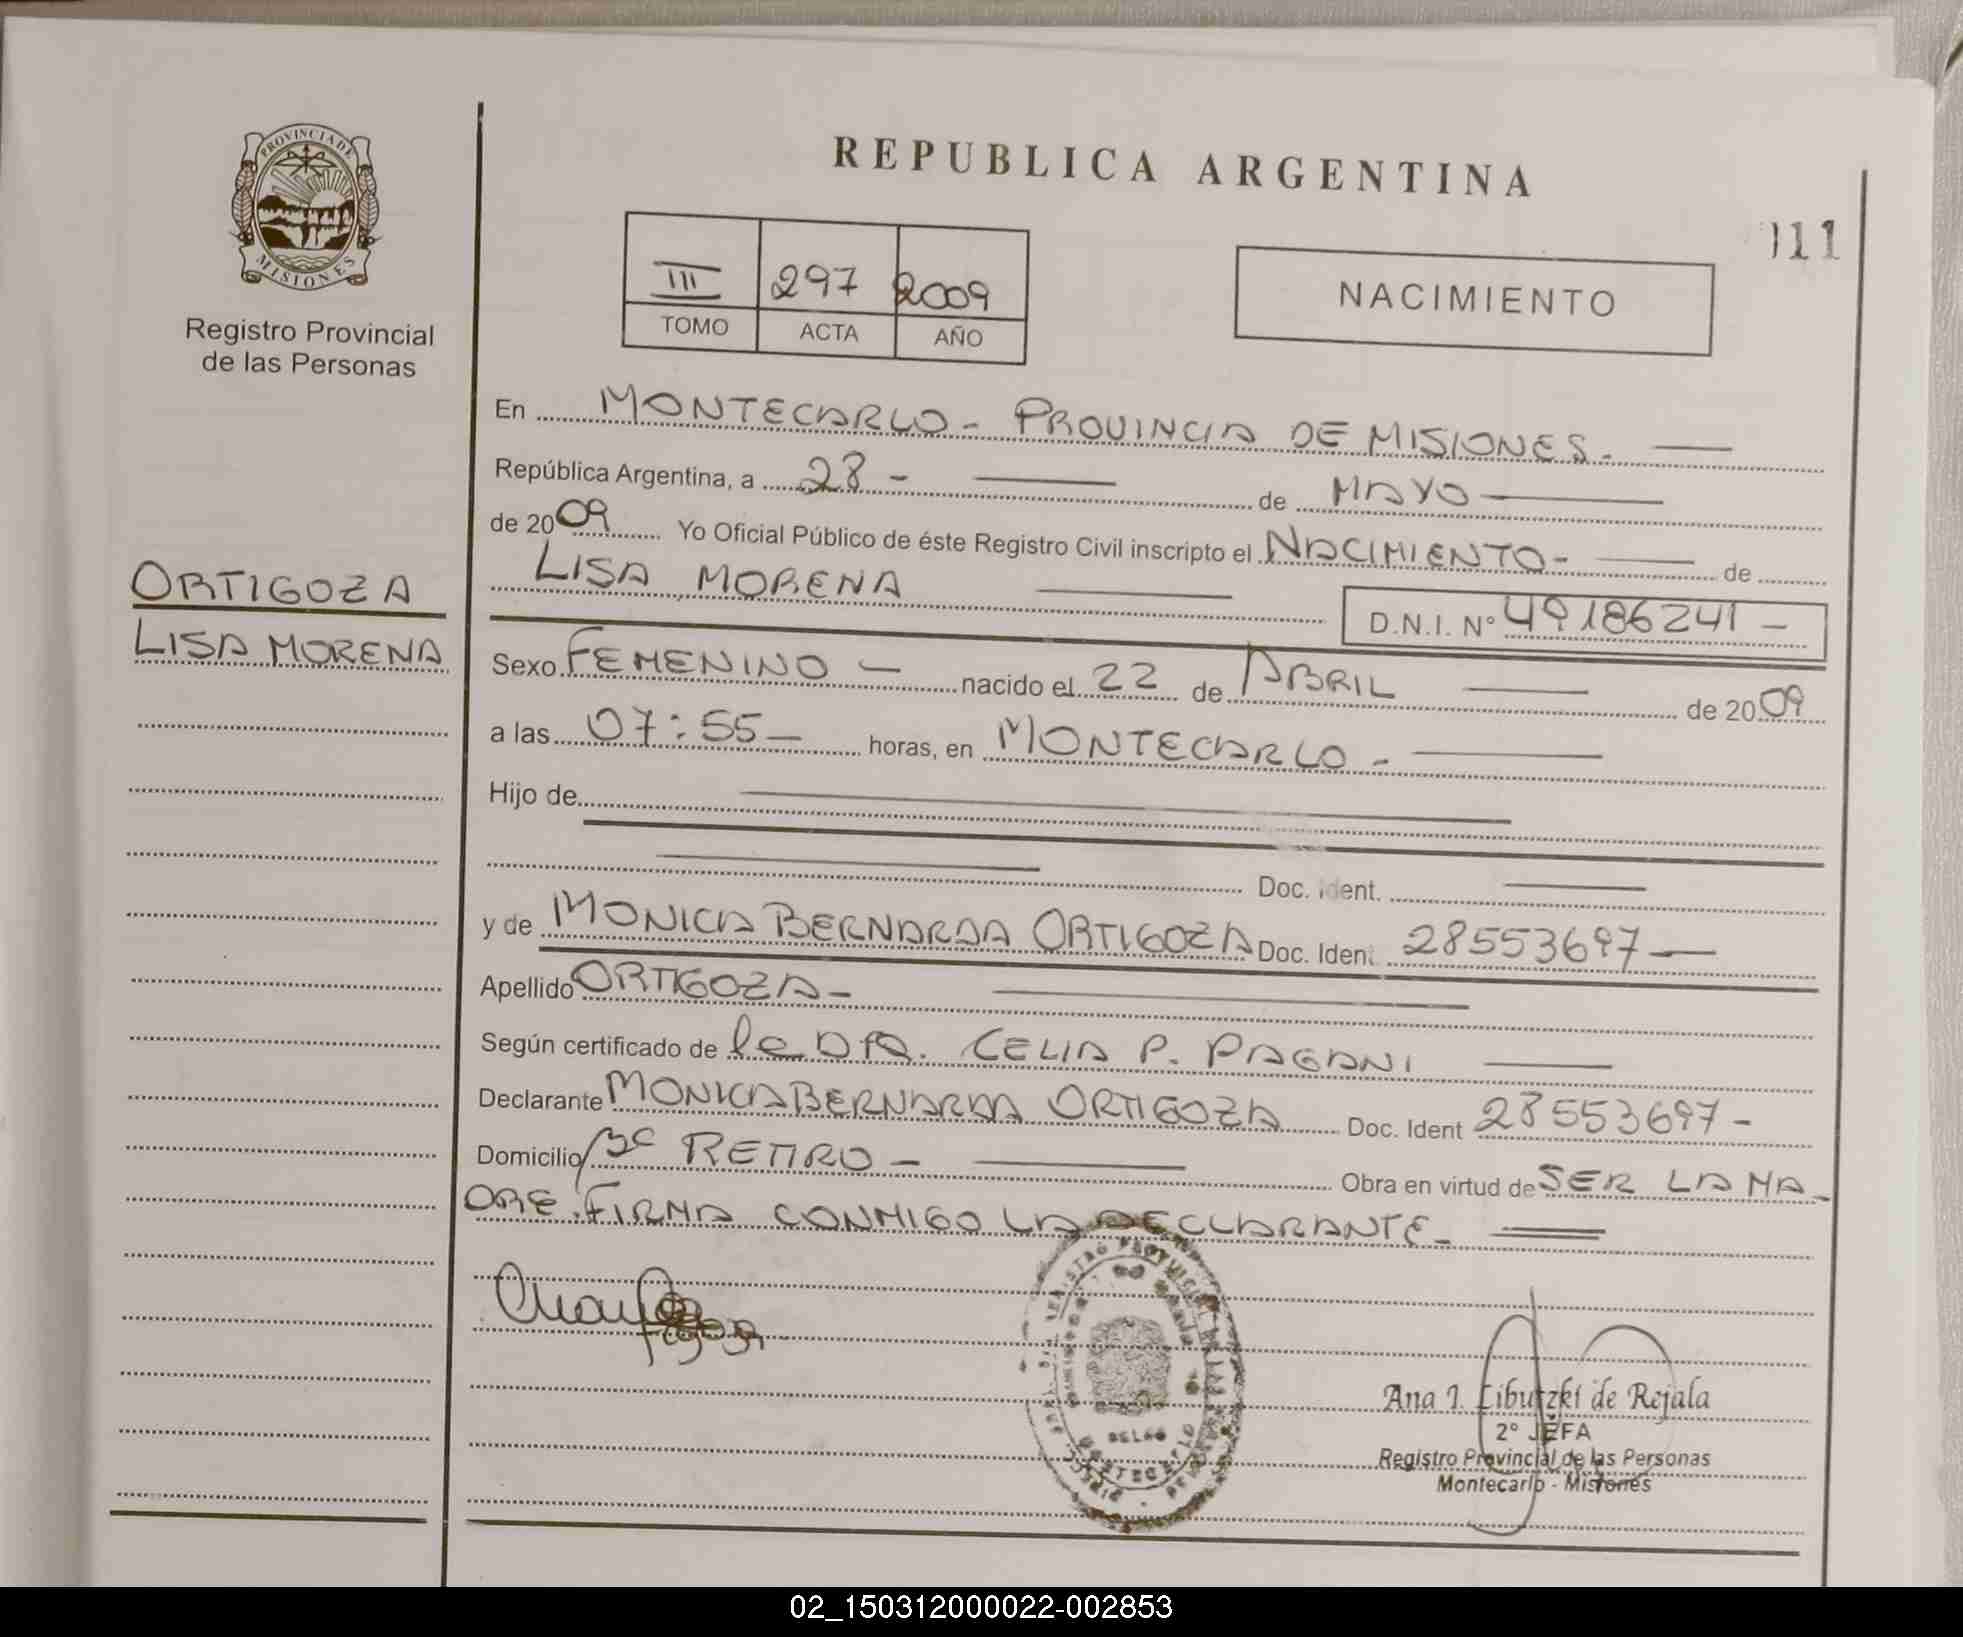 REPUBLICA ARGENTINA
111
PROVINCIA DE
MISIONES
Registro Provincial
de las Personas
III 297 2009
TOMO ACTA AÑO
NACIMIENTO
En MONTECARLO - PROVINCIA DE MISIONES.
República Argentina, a 28 - de MAYO
de 2009 Yo Oficial Público de éste Registro Civil inscripto el NACIMIENTO - de
LISA MORENA D.N.I. Nº 49186241 -
ORTIGOZA
LISA MORENA
Sexo FEMENINO - nacido el 22 de ABRIL de 2009
a las 07:55 - horas, en MONTECARLO -
Hijo de
Doc. Ident.
y de MONICA BERNARDA ORTIGOZA Doc. Ident. 28553697 -
Apellido ORTIGOZA -
Según certificado de la Dra. CELIA P. PAGANI
Declarante MONICA BERNARDA ORTIGOZA Doc. Ident 28553697 -
Domicilio Bº RETIRO - Obra en virtud de SER LA MA-
DRE. FIRMA CONMIGO LA DECLARANTE -
Ana I. Cibutzki de Rejala
2º JEFA
Registro Provincial de las Personas
Montecarlo - Misiones
02_150312000022-002853